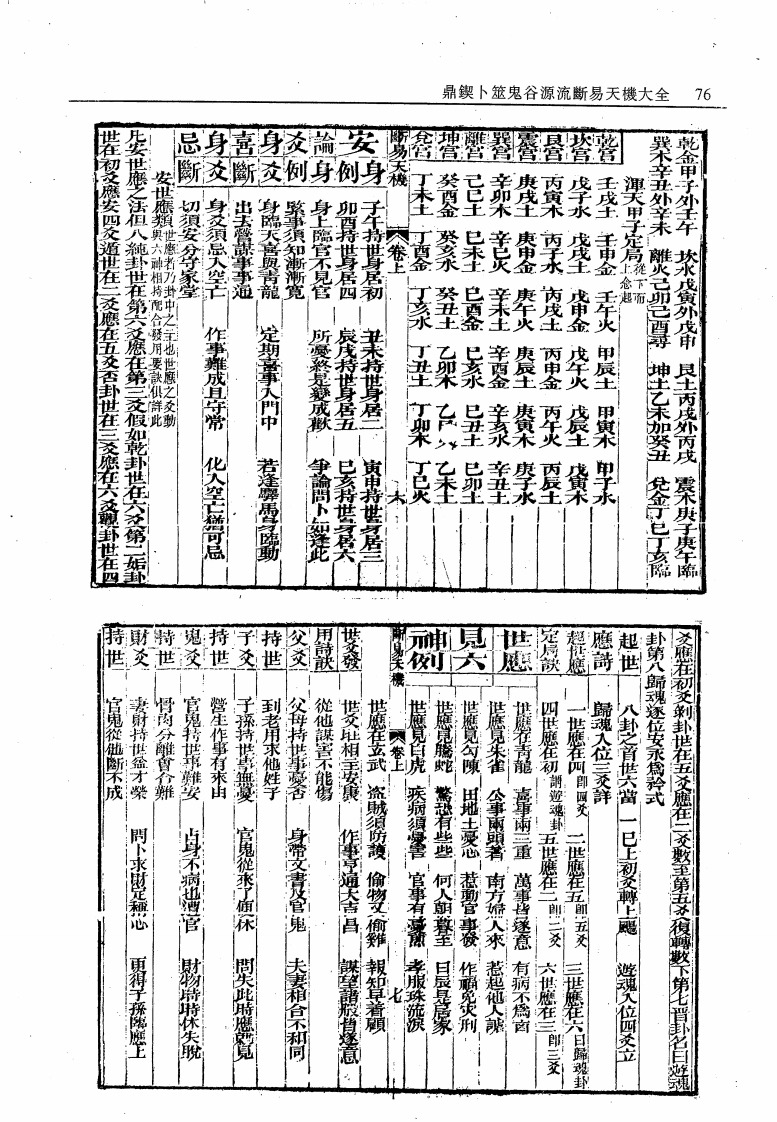 鼎鍥卜筮鬼谷源流斷易天機大全 76
乾金甲子外壬午 坎水戊寅外戊申 艮土丙戌外丙戌 震木庚子庚午臨
巽木辛丑外辛未 離火己卯己酉尋 坤土乙未加癸丑 兌金丁巳丁亥臨
渾天甲子定局 從下而上念起
乾宮 壬戌土 壬申金 壬午火 甲辰土 甲寅木 甲子水
坎宮 戊子水 戊戌土 戊申金 戊午火 戊辰土 戊寅木
艮宮 丙寅木 丙子水 丙戌土 丙申金 丙午火 丙辰土
震宮 庚戌土 庚申金 庚午火 庚辰土 庚寅木 庚子水
巽宮 辛卯木 辛巳火 辛未土 辛酉金 辛亥水 辛丑土
離宮 己巳土 己未土 己酉金 己亥水 己丑土 己卯土
坤宮 癸酉金 癸亥水 癸丑土 乙卯木 乙 乙未土
兌宮 丁未土 丁酉金 丁亥水 丁丑土 丁卯木 丁巳火
斷易天機 卷上 六
安身例 子午持世身居初 丑未持世身居二 寅申持世身居三
卯酉持世身居四 辰戌持世身居五 巳亥持世身居六
論身例 身上臨官不見官 所憂終是變成歡 爭論問卜如逢此
緊事須知漸漸寬
身爻喜斷 身臨天喜與青龍 定期喜事入門中 若逢驛馬身臨動
出去營謀事事通
身爻忌斷 身爻須忌入空亡 作事難成且守常 化入空亡猶可忌
切須安分守家堂
安世應類 世應者乃卦中之主也世應之爻動與六神相持配合發用要訣俱詳此
凡安世應之法但八純卦世在第六爻應在第三爻假如乾卦世在六爻第二姤卦
世在初爻應安四爻遁世在二爻應在五爻否卦世在三爻應在六爻觀卦世在四
爻應在初爻剝卦世在五爻應在二爻數至第五爻復轉數下第七晋卦名曰遊魂
卦第八歸魂逐位安永為矜式
起世應詩 八卦之首世六當 一巳上初爻轉上颺 遊魂八位四爻立
歸魂八位三爻詳
起世應定局訣 一世應在四 即四爻 二世應在五 即五爻 三世應在六 曰歸魂卦
四世應在初 謂遊魂卦 五世應在二 即二爻 六世應在三 即三爻
世應見六神例 世應在青龍 喜事兩三重 萬事皆遂意 有病不為凶
世應見朱雀 公事兩頭著 南方婦人來 惹起他人謀
世應見勾陳 田地土憂心 惹動官事發 作福免災刑
世應見騰蛇 驚恐有些些 何人朝暮至 日辰是居家
世應見白虎 疾病須憂害 官事有 孝服珠流淚
斷易天機 卷上 七
世應在玄武 盜賊須防護 偷物又偷雞 報知早着顧
世爻發用詩訣 世爻 相主安康 作事亨通大吉昌 謀望諸般皆遂意
從他謀害不能傷
父爻持世 父母持世事憂否 身帶文書及官鬼 夫妻相合不和同
到老用求他姓子
子爻持世 子孫持世事無憂 官鬼從來了便休 問失此時應 見
營生作事有來由
鬼爻持世 官鬼持世事難安 占身不病也遭官 財物時時休失脫
骨肉分離會合難
財爻持世 妻財持世益才榮 問卜求財定稱心 更得子孫臨應上
官鬼從他斷不成